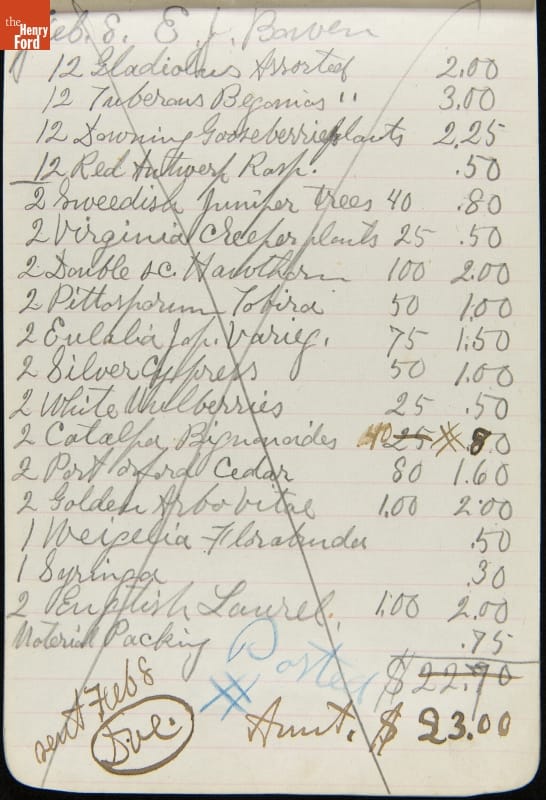 the
Henry
Ford
Feb. 8. E. J. Bowen
12 Gladiolus Assorted 2.00
12 Tuberous Begonias " 3.00
12 Downing Gooseberries plants 2.25
12 Red Antwerp Rasp. .50
2 Sweedish Juniper trees 40 .80
2 Virginia Creeper plants 25 .50
2 Double sc. Hawthorn 100 2.00
2 Pittosporum Tobira 50 1.00
2 Eulalia Jap. Varieg. 75 1.50
2 Silver Cypress 50 1.00
2 White Mulberries 25 .50
2 Catalpa Bignonoides 40 25 .80
2 Port Orford Cedar 80 1.60
2 Golden Arbovitae 1.00 2.00
1 Weigelia Florabunda .50
1 Syringa .30
2 English Laurel, 1.00 2.00
Material Packing .75
Posted $22.90
sent Feb 8 Amt. $23.00